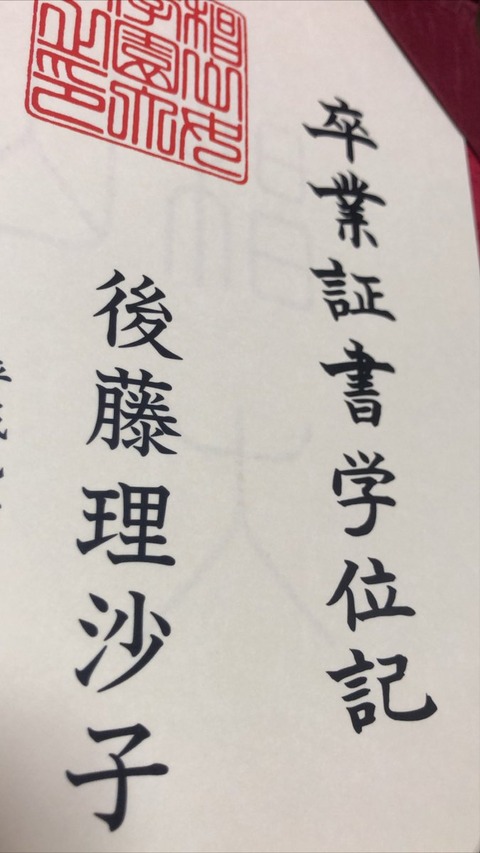 卒業証書学位記
後藤理沙子